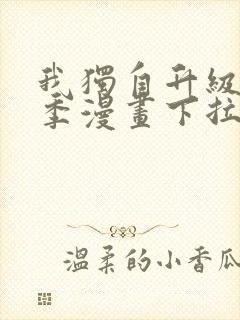 我獨自升級
季漫畫下拉
溫柔的小香瓜